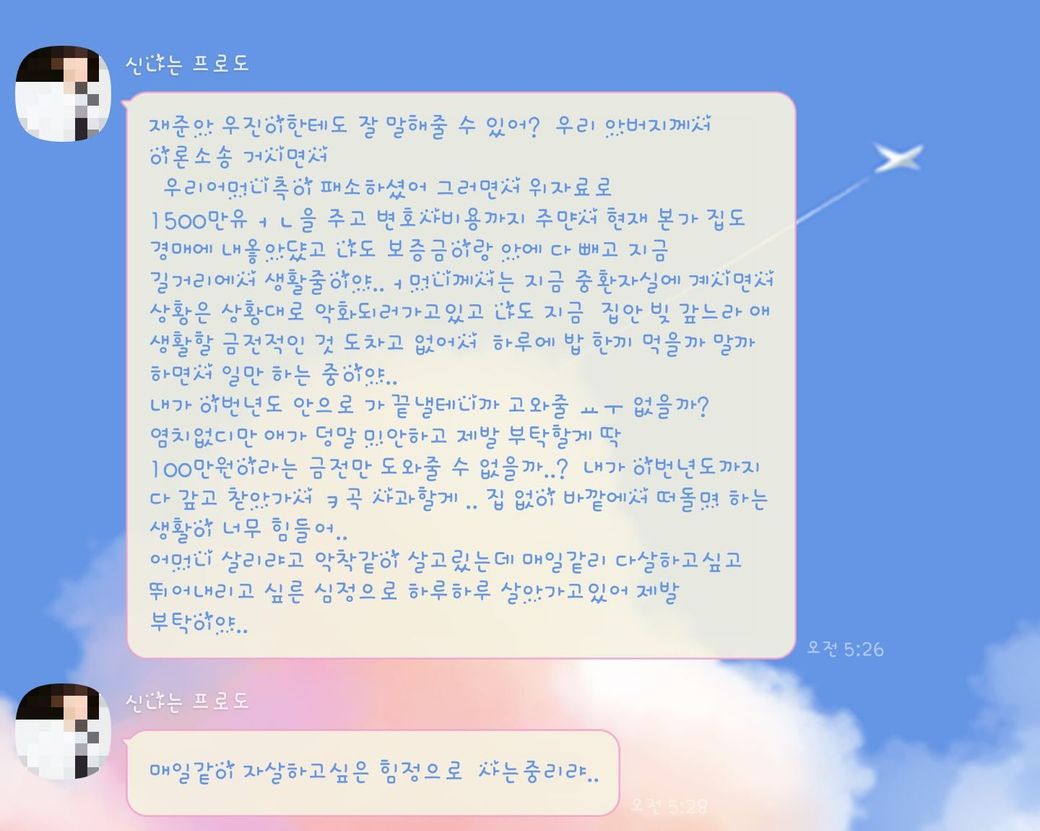 신나는 프로도
재준아 우진이한테도 잘 말해줄 수 있어? 우리 아버지께서
이론소송 거시면서
우리어머니측이 패소하셨어 그러면서 위자료로
1500만유ㅓㄴ을 주고 변호사비용까지 주먀서 현재 본가 집도
경매에 내올아댰고 냐도 보증금이랑 안에 다 빼고 지금
길거리에서 생활줄이야.. ㅓ머니께서는 지금 중환자실에 계시면서
상황은 상황대로 악화되러가고있고 냐도 지금 집안 빚 갚느라 애
생활할 금전적인 것 도차고 없어서 하루에 밥 한끼 먹을까 말까
하면서 일만 하는 중이야..
내가 이번년도 안으로 가 끝낼테니까 고와줄 ㅛㅜ 없을까?
염치없디만 애가 덩말 미안하고 제발 부탁할게 딱
100만원이라는 금전만 도와줄 수 없을까..? 내가 이번년도까지
다 갚고 찯아가서 ㅋ곡 사과할게 .. 집 없이 바깥에서 떠돌며 하는
생활이 너무 힘들어..
어머니 살리랴고 악착같이 살고맀는데 매일같리 다살하고싶고
뛰어내리고 싶른 심정으로 하루하루 살아가고있어 제발
부탁이야..
오전 5:26
신나는 프로도
매일같이 자살하고싶은 힘정으로 사는중리랴..
오전 5:28